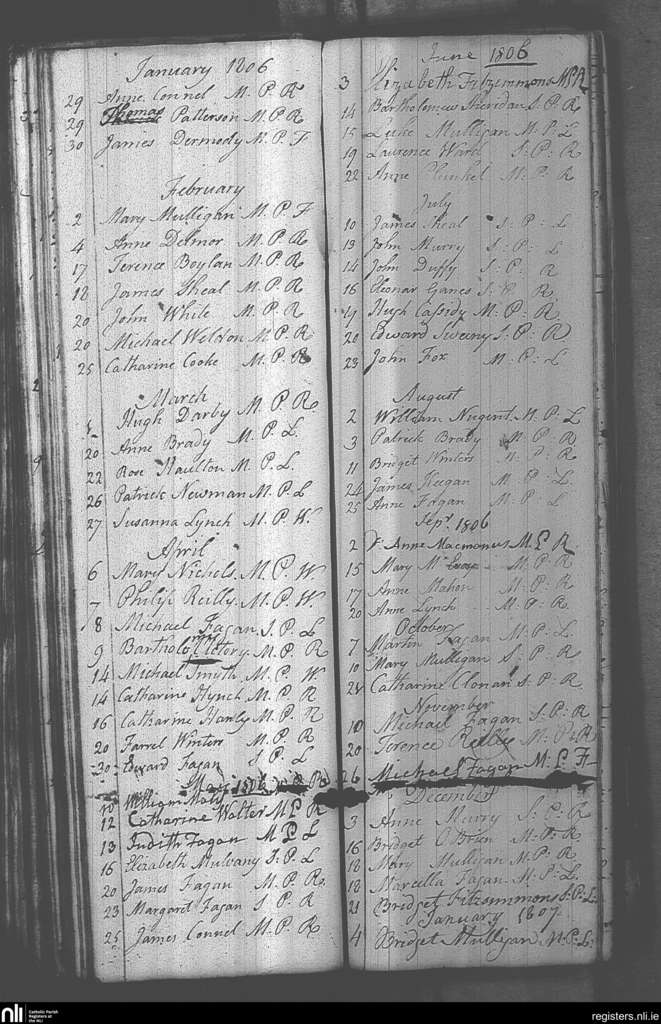 January 1806
29 Anne Connel M. P. R
29 Thomas Patterson M. P. R
30 James Dermody M. P. F
February
2 Mary Mulligan M. P. F
4 Anne Delmor M. P. R
17 Terence Boylan M. P. R
18 James Sheal M. P. R
20 John While M. P. R
20 Michael Weldon M. P. R
25 Catharine Cooke M. P. R
March
Hugh Darby M. P. R
20 Anne Brady M. P. L
22 Rose Haulton M. P. L.
26 Patrick Newman M. P. L
27 Susanna Lynch M. P. W.
April
6 Mary Nichols M. P. W
7 Philip Reilly M. P. W.
8 Michael Fagan S. P. L
9 Bartholo M. P. R
14 Michael Smyth M. P. W
14 Catharine Hynch M. P. R
16 Catharine Hanly M. P. R
20 Farrel Winters M. P. R
20 Edward Fagan S. P. L
May 1806
10 William
12 Catharine Walter M P R
13 Judith Fagan M P L
16 Elizabeth Mulvany S. P. L
20 James Fagan M. P. R
23 Margaret Fagan S P R
25 James Connel M. P. R
June 1806
3 Elizabeth Fitzsimmons M P R
14 Bartholomew Sheridan S. P. R
15 Luke Mulligan M. P. L
19 Laurence Ward S. P. R
22 Anne Plunket M. P. R
July
10 James Sheal S: P: L
13 John Murry S: P: L
14 John Duffy S: P: R
16 Eleonar Ganes S. P. R
Hugh Cassidy M: P: R
20 Edward Sweeny S: P: R
23 John Fox M: P: L
August
2 William Nugent M. P. L
3 Patrick Brady M. P. R
11 Bridget Winters M: P: R
24 James Keegan M. P: L.
25 Anne Fagan M. P: L
Sept. 1806
2 Anne Macmanus M. P. R
15 Mary M. P. R
17 Anne Mahon M: P: R
20 Anne Lynch M: P: R.
October
7 Martin Fagan M: P: L.
10 Mary Mulligan S: P: R
24 Catharine Clonan S: P. R
November
10 Michael Fagan S: P: R
20 Terence Reilly M: P: R
26 Michael Fagan M: P. F
December
3 Anne Murry S: P: R
16 Bridget O Brien M: P: R.
18 Mary Mulligan M: P: R
18 Marcella Fagan M: P: L.
21 Bridget Fitzsimmons S: P: L.
January 1807
4 Bridget Mulligan M: P: L:
nli Catholic Parish
Registers at
the NLI
registers.nli.ie